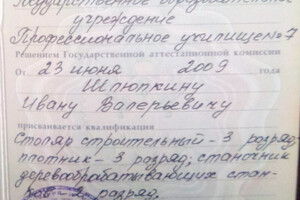 Государственное образовательное
учреждение
Профессиональное училище №7
Решением Государственной аттестационной комиссии
От 23 июня 2009 года
Шлюпкину
Ивану Валерьевичу
присваивается квалификация
Столяр строительный - 3 разряд;
плотник - 3 разряд; станочник
деревообрабатывающих стан-
ков - 2 разряд.